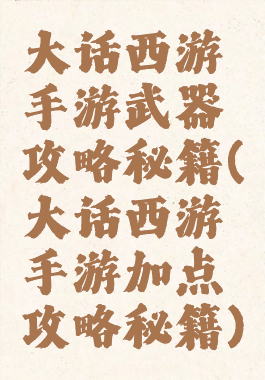 大话西游
手游武器
攻略秘籍(
大话西游
手游加点
攻略秘籍)